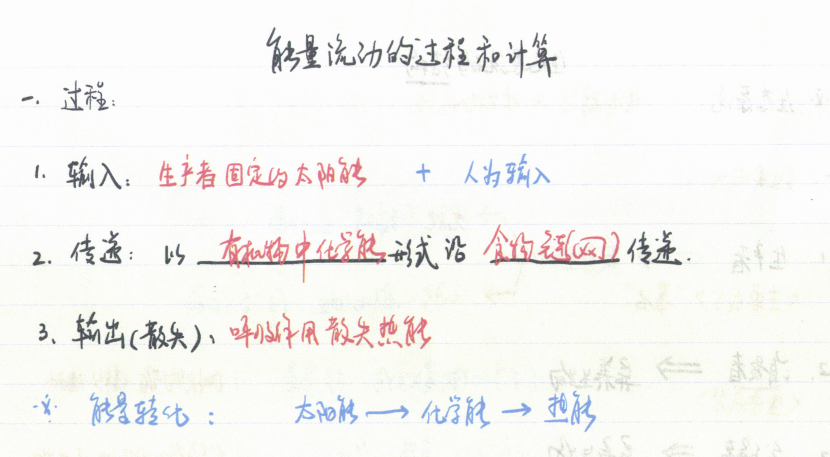 能量流动的过程和计算
一. 过程:
1. 输入: 生产者固定的太阳能 + 人为输入
2. 传递: 以 有机物中化学能 形式沿 食物链(网) 传递.
3. 输出(散失)、呼吸作用散失热能
※ 能量转化: 太阳能 → 化学能 → 热能